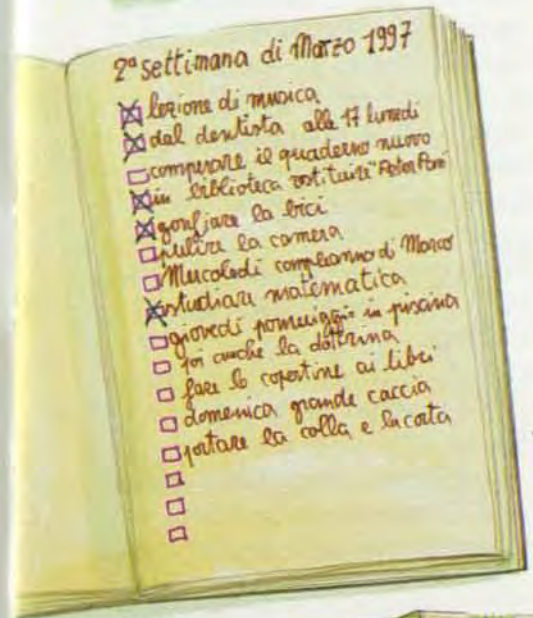 2ª settimana di Marzo 1997
lezione di musica
dal dentista alle 17 lunedì
comperare il quaderno nuovo
in biblioteca restituire "Peter Pan"
gonfiare la bici
pulire la camera
Mercoledì compleanno di Marco
studiare matematica
giovedì pomeriggio in piscina
poi anche la dottrina
fare le copertine ai libri
domenica grande caccia
portare la colla e la carta